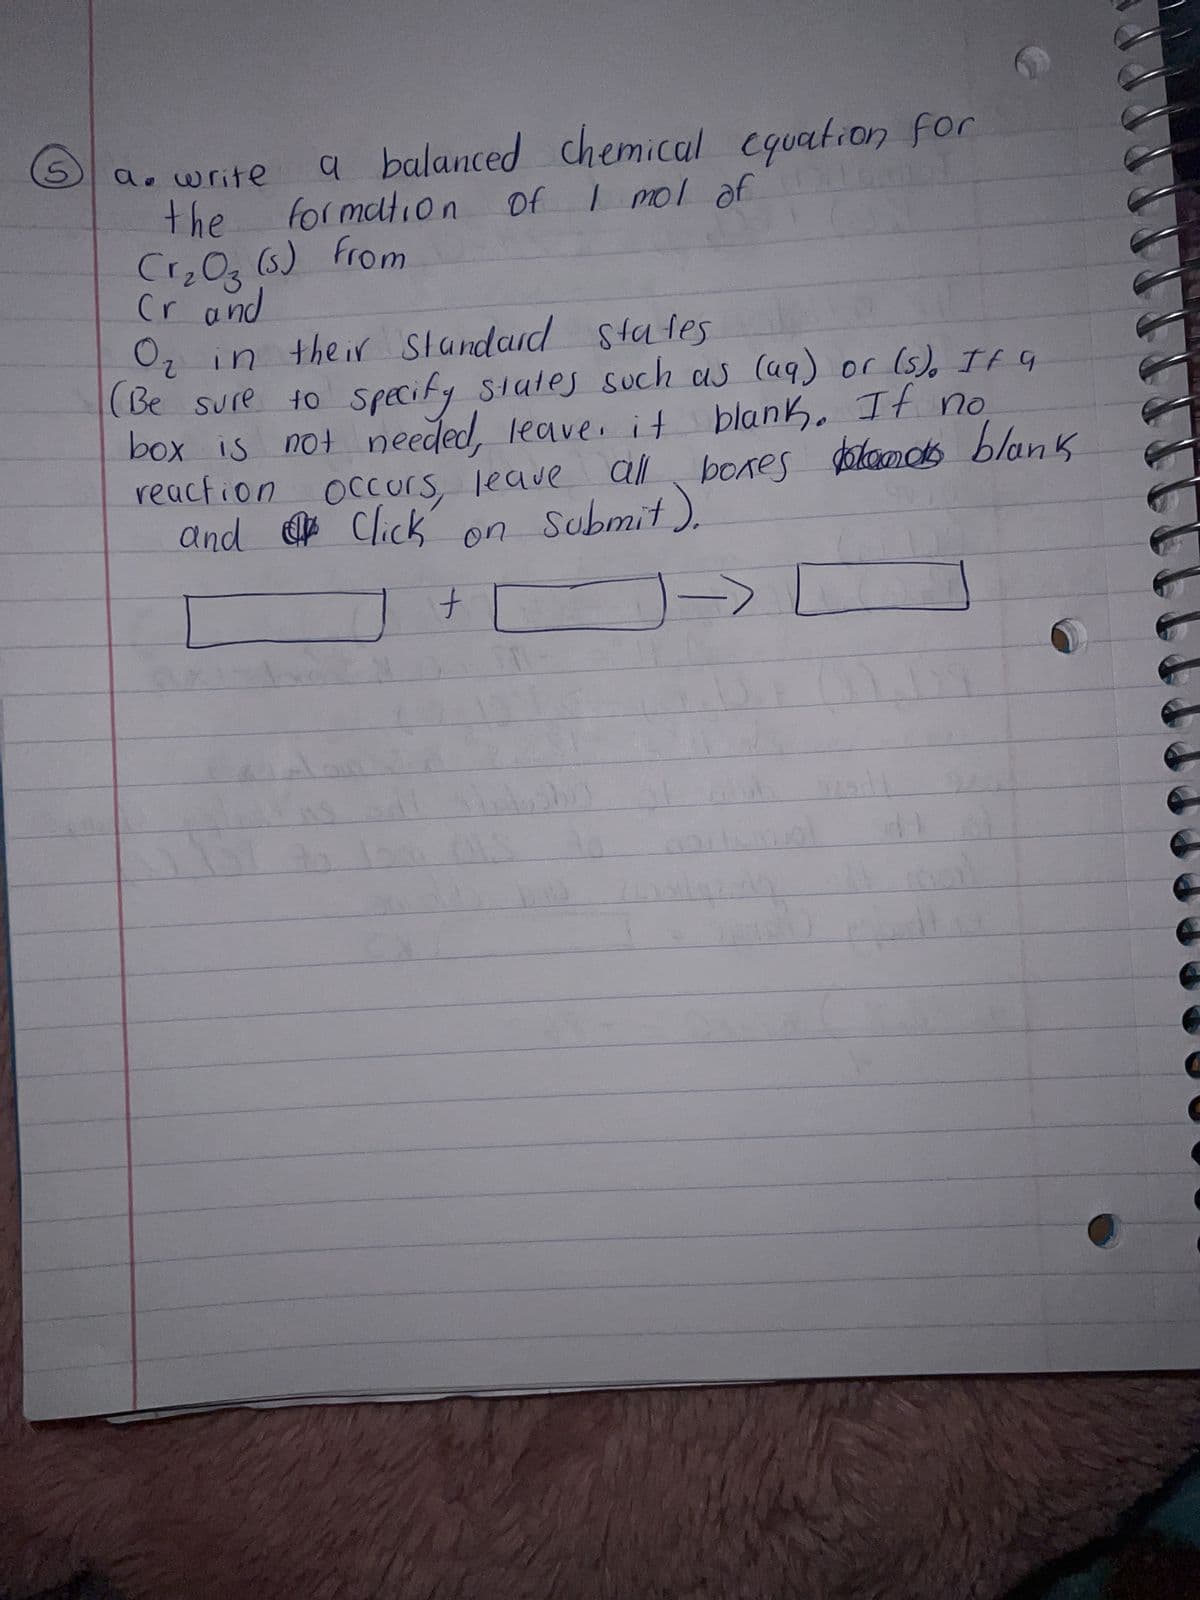 5 a. write a balanced chemical equation for
the formation of 1 mol of
Cr₂O₃ (s) from
Cr and
O₂ in their standard states
(Be sure to specify states such as (aq) or (s). If a
box is not needed, leave it blank. If no
reaction occurs, leave all boxes blank
and Click on Submit).
+ ->